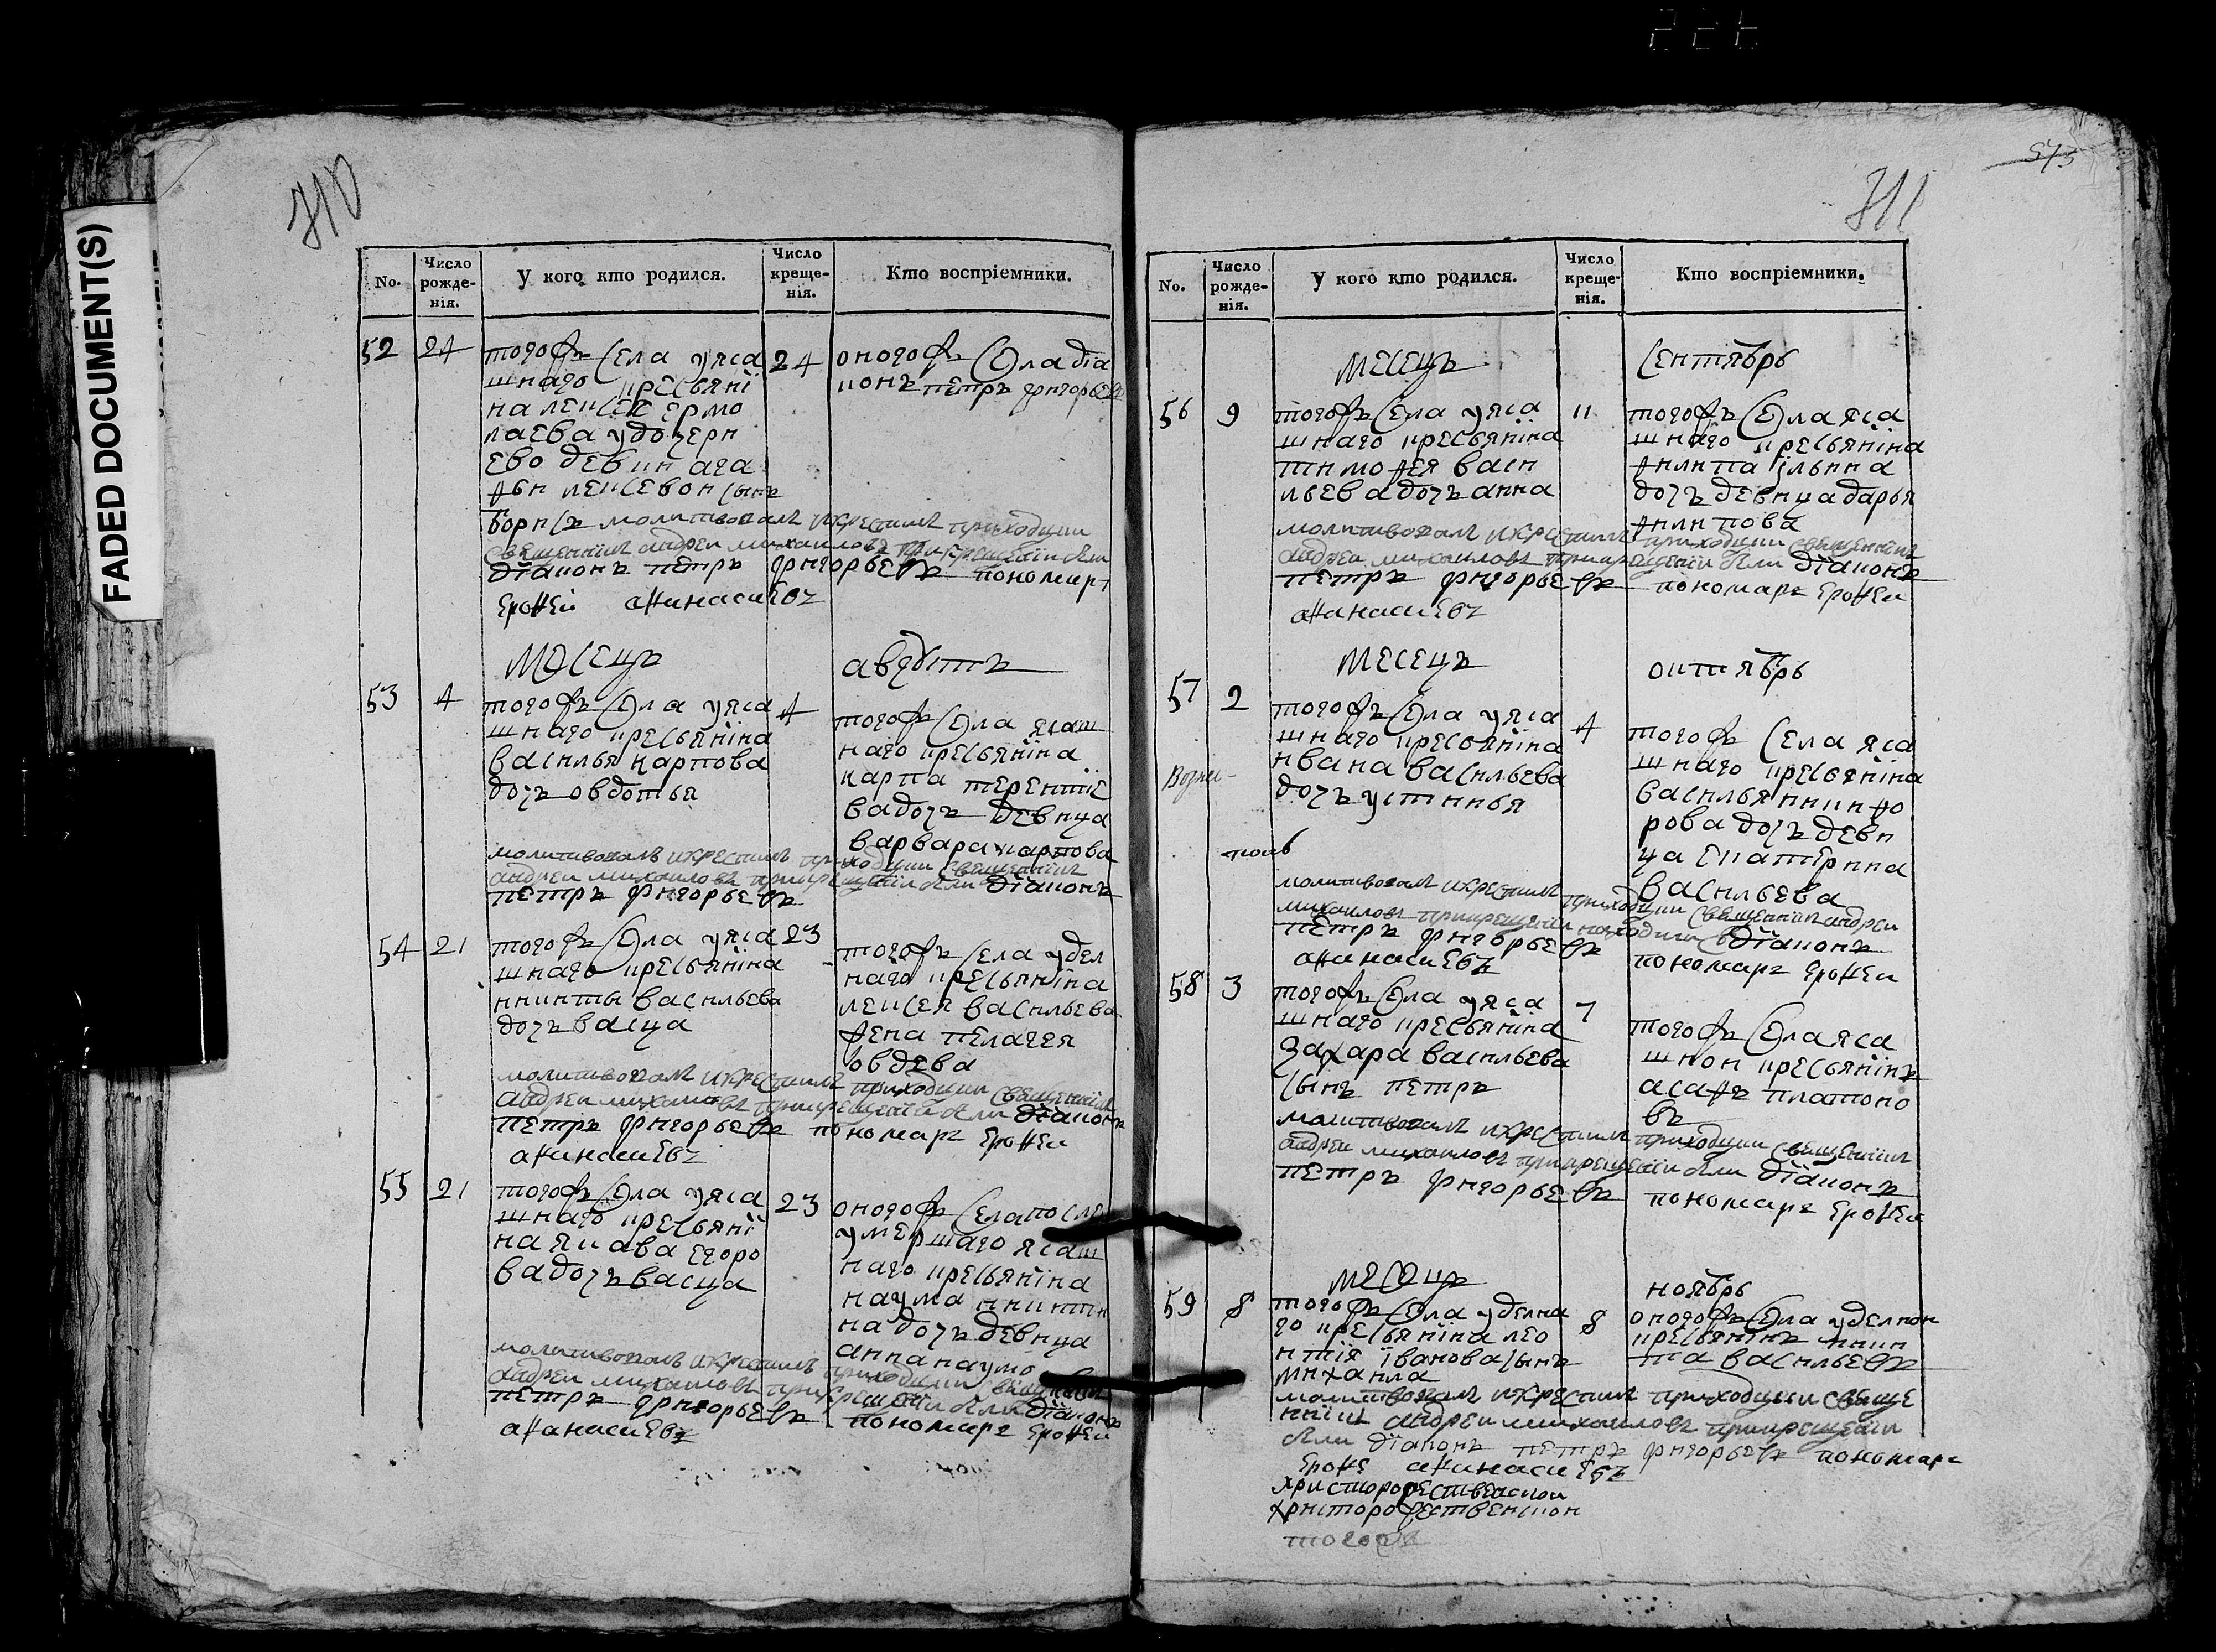 FADED DOCUMENT(S)
710
No.
Число рожде-нія.
У кого кто родился.
Число креще-нія.
Кто воспріемники.
52 24
тогожъ села уяса
шнаго кресьяні
на лексея ермо
лаева удочери
ево девки ага
фьи лексевои сынъ
борисъ
24
оногожъ села діа
конъ петръ григорьевъ
молитвовалъ икрестилъ приходцки
священникъ андреи михаиловъ прикрещеніи были
діаконъ петръ григорьевъ пономарь
ерофеи афанасиевъ
месецъ августъ
53 4
тогожъ села уяса
шнаго кресьяніна
васильья карпова
дочь овдотья
4
тогожъ села ясаш
наго кресьяніна
карпа терентіе
ва дочь девица
варвара карпова
молитвовалъ икрестилъ приходцки священникъ
андреи михаиловъ прикрещеніи были діаконъ
петръ григорьевъ
54 21
тогожъ села уяса
шнаго кресьяніна
никиты васильева
дочь васца
23
тогожъ села удел
наго кресьяніна
лексея васильева
жена пелагея
овдева
молитвовалъ икрестилъ приходцки священникъ
андреи михаиловъ прикрещеніи были діаконъ
петръ григорьевъ пономарь ерофеи
афанасиевъ
55 21
тогожъ села уяса
шнаго кресьяні
на якава егоро
ва дочь васца
23
оногожъ села после
умершаго ясаш
наго кресьяніна
наума никити
на дочь девица
анна наумова
молитвовалъ икрестилъ приходцки священникъ
андреи михаиловъ прикрещеніи были діаконъ
петръ григорьевъ пономарь ерофеи
афанасиевъ
711
573
No.
Число рожде-нія.
У кого кто родился.
Число креще-нія.
Кто воспріемники.
месецъ сентябрь
56 9
тогожъ села уяса
шнаго кресьяніна
тимофея васи
льева дочь анна
11
тогожъ села яса
шнаго кресьяніна
филипа ільина
дочь девица дарья
филипова
молитвовалъ икрестилъ приходцки священникъ
андреи михаиловъ прикрещеніи были діаконъ
петръ григорьевъ пономарь ерофеи
афанасиевъ
месецъ октябрь
57 2
тогожъ села уяса
шнаго кресьяніна
ивана васильева
дочь устинья
4
тогожъ села яса
шнаго кресьяніна
васильья никифо
рова дочь деви
ца екатерина
васильева
молитвовалъ икрестилъ приходцки священникъ андреи
михаиловъ прикрещеніи находился діаконъ
петръ григорьевъ
пономарь ерофеи
афанасиевъ
58 3
тогожъ села уяса
шнаго кресьяніна
захара васильева
сынъ петръ
7
тогожъ села яса
шнои кресьянінъ
асафъ платоно
въ
молитвовалъ икрестилъ приходцки священникъ
андреи михаиловъ прикрещеніи были діаконъ
петръ григорьевъ
пономарь ерофеи
месецъ ноябрь
59 8
тогожъ села уделна
го кресьяніна лео
нтія іванова сынъ
михаила
8
оногожъ села уделнои
кресьянінъ ники
та васильевъ
молитвовалъ икрестилъ приходцки свяще
нникъ андреи михаиловъ прикрещеніи
были діаконъ петръ григорьевъ пономарь
ерофе афанасиевъ
христорожественскои
христорожественскои
тогожъ